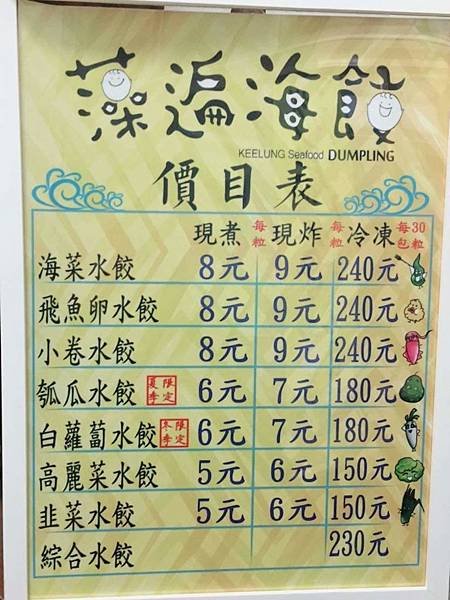 藻遍海餃
KEELUNG Seafood DUMPLING
價目表
現煮 每粒 現炸 每粒 冷凍 每30包粒
海菜水餃 8元 9元 240元
飛魚卵水餃 8元 9元 240元
小卷水餃 8元 9元 240元
瓠瓜水餃 夏季限定 6元 7元 180元
白蘿蔔水餃 冬季限定 6元 7元 180元
高麗菜水餃 5元 6元 150元
韭菜水餃 5元 6元 150元
綜合水餃 230元